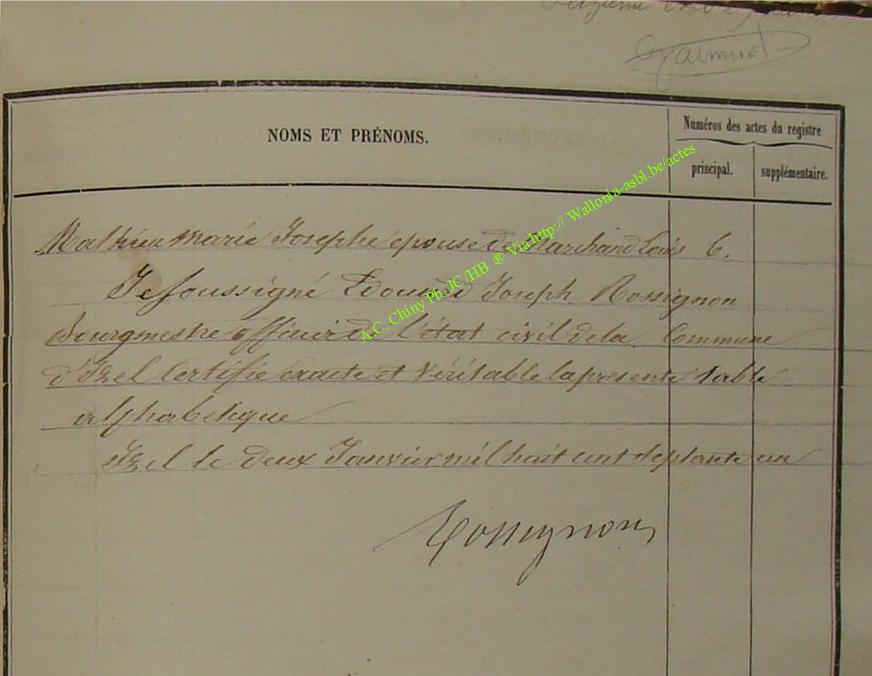 NOMS ET PRÉNOMS.
Numéros des actes du registre
principal.
supplémentaire.
Mathieu Marie Josephe epouse de Marchand Louis 6.
Je soussigné Edouard Joseph Rossignon
Bourgmestre officier de l'état civil de la Commune
d'Izel Certifie Exacte et Véritable la presente table
alphabetique
Izel le deux Janvier mil huit cent septante un
Rossignon
A.C. Chiny Ph JC/HB ® Via http:// Wallonia-asbl.be/actes